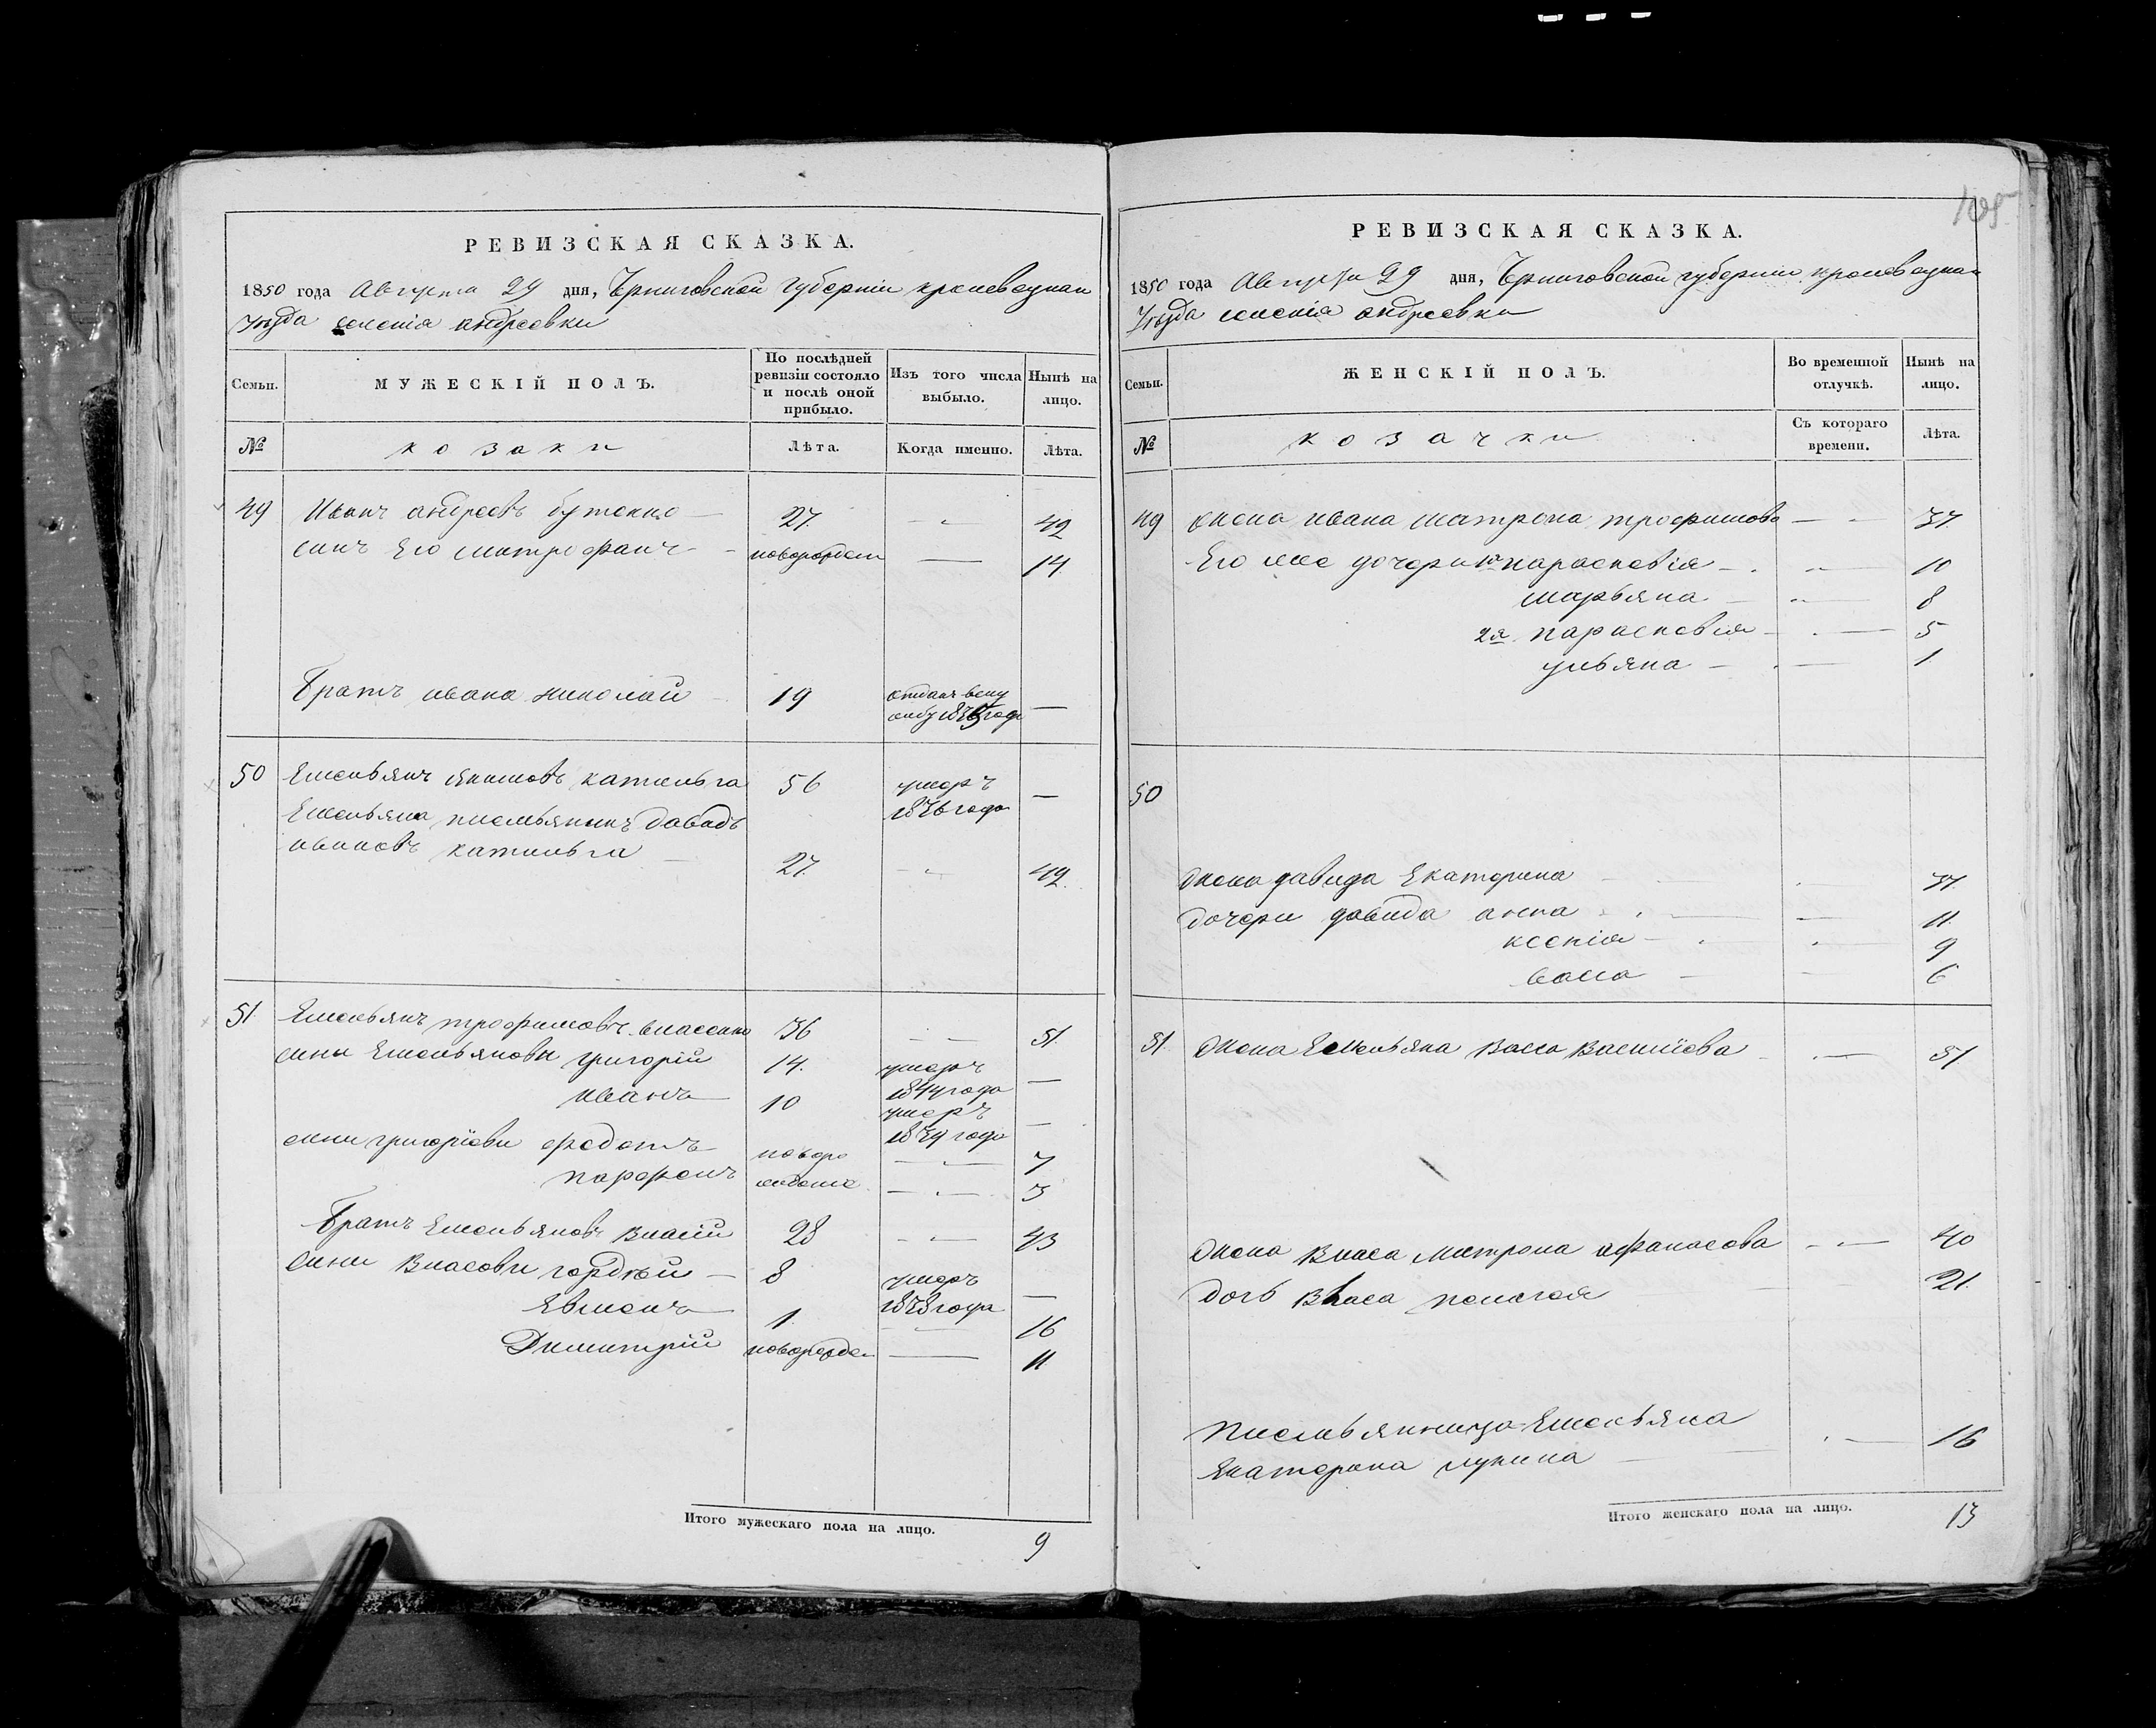 РЕВИЗСКАЯ СКАЗКА.
1850 года Августа 29 дня, Черниговской Губерніи кролевецкаго
Уезда селенія андреевки
Семьи.
МУЖЕСКІЙ ПОЛЪ.
По послѣдней ревизіи состояло и послѣ оной прибыло.
Изъ того числа выбыло.
Нынѣ на лицо.
№
козаки
Лѣта.
Когда именно.
Лѣта.
49 Иванъ андреевъ бутенко — 27. — 42
синъ Его митрофанъ — новорожден — 14
Братъ ивана николай 19 —
1845 года
50 Емельянъ якимовъ катильга 56 умеръ —
1846 года
Емельяна племьяникъ давидъ
ивановъ катильга — 27. — 42.
51. Емельянъ трофимовъ власенко 36 — 51.
сины Емельяновы григорій 14. умеръ —
1844 года
иванъ 10 умеръ —
1849 года
сини григорїеви федотъ новоро — 7
парфенъ жденіе — 3
Братъ Емельяновъ власій 28 — 43
сини Власови гордѣй — 8 умеръ —
1848 года
Евменъ 1. — 16
Димитрій новорожден — 11
Итого мужескаго пола на лицо. 9
РЕВИЗСКАЯ СКАЗКА.
1850 года Августа 29 дня, Черниговской губерніи кролевецкаго
Уезда селенія андреевки
Семьи.
ЖЕНСКІЙ ПОЛЪ.
Во временной отлучкѣ.
Нынѣ на лицо.
№
козачки
Съ котораго времени.
Лѣта.
49 жена ивана матрона трофимова — 37
Его же дочери 1я парасковія — 10
марьяна — 8
2я парасковія — 5
ульяна — 1
50
жена давида Екатерина 37.
дочери давида анна — 11.
ксенія — 9
васса — 6
51. жена Емельяна васса Василїева — 51
жена власа матрона афанасова — 40
дочь Власа пелагея 21.
племьянница Емельяна
Екатерина лукина — 16
Итого женскаго пола на лицо. 13